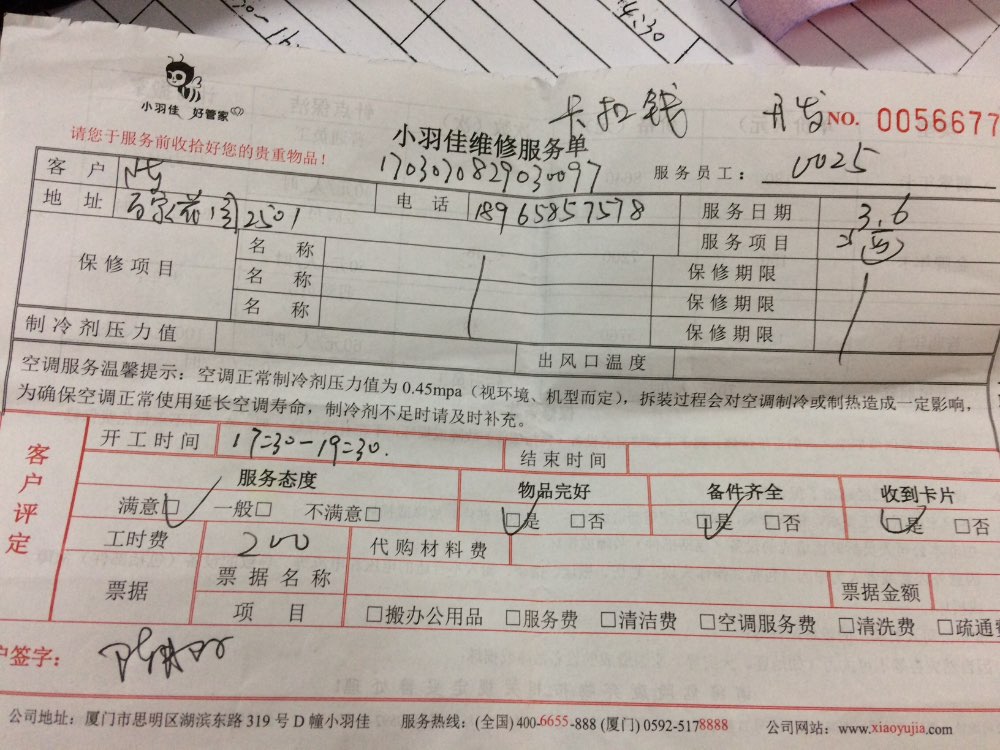 4:30
小羽佳 好管家
卡扣钱
NO. 0056677
请您于服务前收拾好您的贵重物品！
小羽佳维修服务单
1703030829030097
服务员工： 0025
客户
地址 2501
电话 18965857578
服务日期 3.6
服务项目
保修项目
名称 保修期限
名称 保修期限
名称 保修期限
制冷剂压力值
出风口温度
空调服务温馨提示：空调正常制冷剂压力值为 0.45mpa（视环境、机型而定），拆装过程会对空调制冷或制热造成一定影响，
为确保空调正常使用延长空调寿命，制冷剂不足时请及时补充。
客户评定
开工时间 17:30-19:30.
结束时间
服务态度 物品完好 备件齐全 收到卡片
满意□ 一般□ 不满意□ □是 □否 □是 □否 □是 □否
工时费 200 代购材料费
票据 票据名称 票据金额
项目 □搬办公用品 □服务费 □清洁费 □空调服务费 □清洗费 □疏通费
户签字：
公司地址：厦门市思明区湖滨东路 319 号 D 幢小羽佳 服务热线：(全国) 400-6655-888 (厦门) 0592-5178888 公司网站：www.xiaoyujia.com